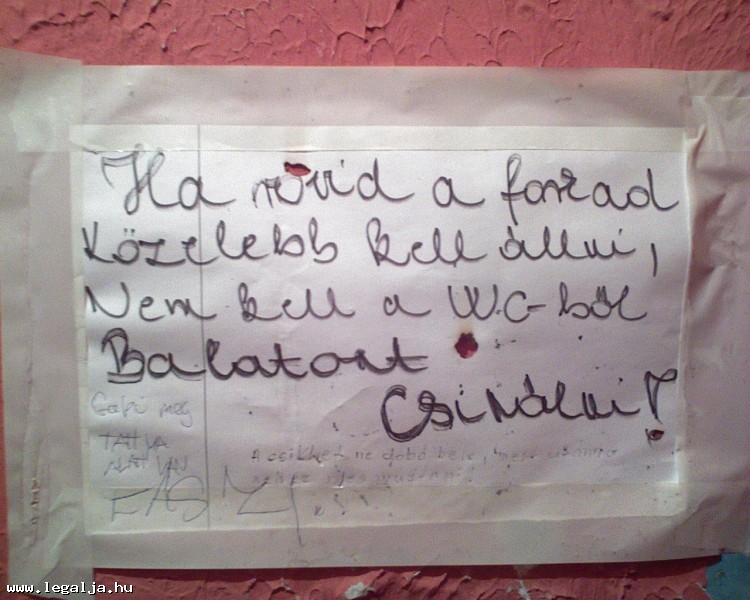 Ha rövid a farkad
Közelebb kell állni,
Nem kell a WC-ből
Balatont
Csinálni!
meg
TATTYA
A csikket ne dobd bele, mert utánna
www.legalja.hu